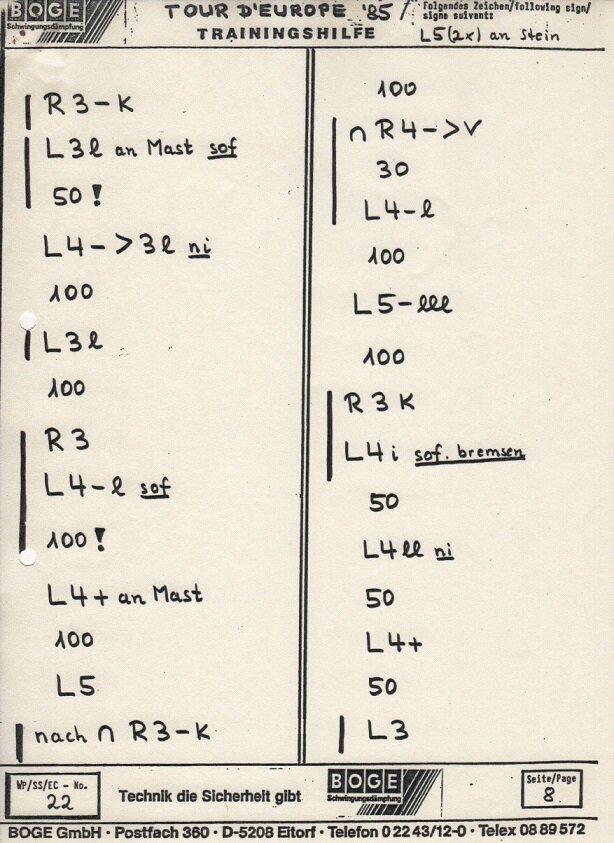 BOGE
Schwingungsdämpfung
TOUR D'EUROPE '85
TRAININGSHILFE
Folgendes Zeichen/following sign/
signe suivant:
L5(2x) an Stein
R3-K
L3l an Mast sof
50!
L4->3l ni
100
L3l
100
R3
L4-l sof
100!
L4+ an Mast
100
L5
nach ∩ R3-K
100
∩ R4->v
30
L4-l
100
L5-lll
100
R3K
L4i sof. bremsen
50
L4ll ni
50
L4+
50
L3
WP/SS/EC - No.
22
Technik die Sicherheit gibt
BOGE
Schwingungsdämpfung
Seite/Page
8
BOGE GmbH · Postfach 360 · D-5208 Eitorf · Telefon 0 22 43/12-0 · Telex 08 89 572